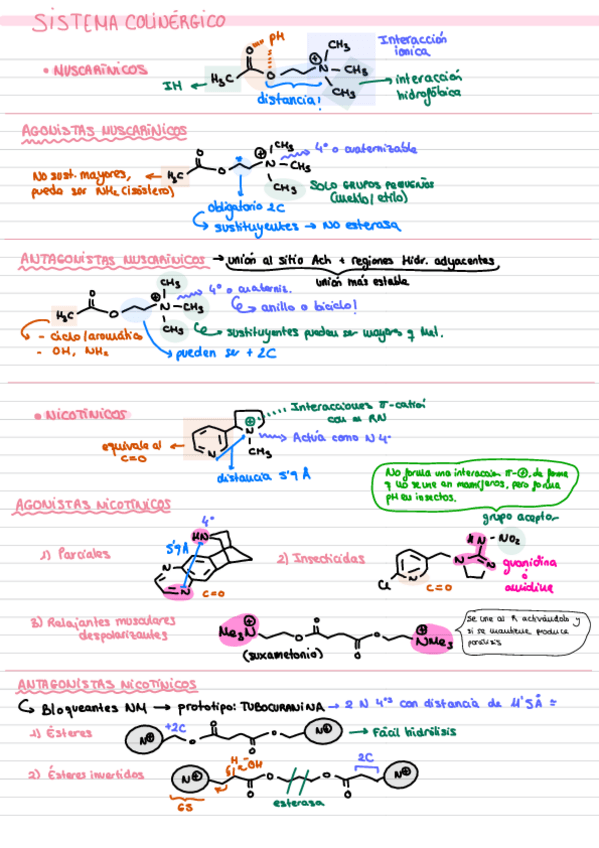 SISTEMA COLINÉRGICO
• MUSCARÍNICOS
pH
Interacción iónica
IH
H3C
O
O
N
CH3
CH3
CH3
distancia!
interacción hidrofóbica
AGONISTAS MUSCARÍNICOS
No sust. mayores, pueda ser NH2 (isóstero)
H3C
O
O
N
CH3
CH3
CH3
4º o cuaternizable
SOLO GRUPOS PEQUEÑOS (metilo/etilo)
obligatorio 2C
sustituyentes → No esterasa
ANTAGONISTAS MUSCARÍNICOS → unión al sitio Ach + regiones Hidr. adyacentes
unión más estable
H3C
O
O
N
CH3
CH3
CH3
4º o cuaterniz.
anillo o biciclo!
- ciclo/aromático
- OH, NH2
sustituyentes pueden ser mayores
pueden ser + 2C
• NICOTÍNICOS
Interacciones π-catión con el RN
N
N
CH3
equivale al C=O
Actúa como N 4º
distancia 5'9 Å
No forma una interacción π-⊕, de forma q no se une en mamíferos, pero forma pH en insectos.
AGONISTAS NICOTÍNICOS
grupo aceptor
1) Parciales
4º
HN
5'9 Å
N
N
C=O
2) Insecticidas
N - NO2
Cl
N
N
N
C=O
guanidina o amidina
3) Relajantes musculares despolarizantes
Me3N
O
O
O
O
NMe3
(suxametonio)
Se une al R activándolo y si se mantiene produce parálisis
ANTAGONISTAS NICOTÍNICOS
Bloqueantes NM → prototipo: TUBOCURANINA → 2 N 4ºs con distancia de 11'5Å =
1) Ésteres
+2C
N⊕
O
O
O
O
N⊕
→ Fácil hidrólisis
2) Ésteres invertidos
N⊕
H
OH
O
O
O
O
2C
N⊕
GS
esterasa